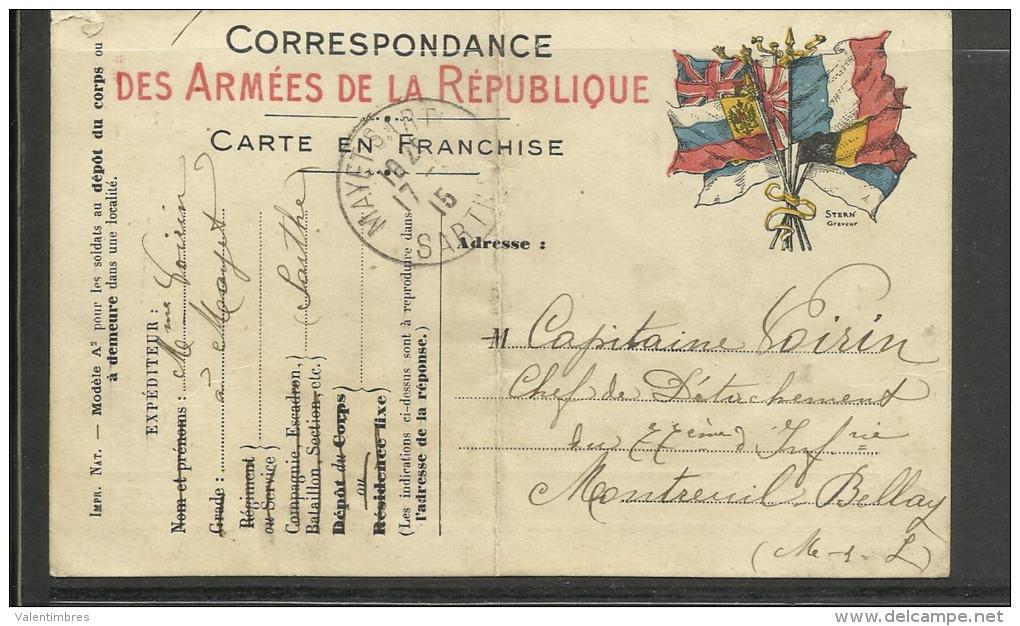 CORRESPONDANCE
DES ARMÉES DE LA RÉPUBLIQUE
CARTE EN FRANCHISE
MAYET
17
15
SARTHE
STERN
Graveur
IMPR. NAT. — Modèle A² pour les soldats au dépôt du corps ou
à demeure dans une localité.
EXPÉDITEUR :
Nom et prénoms : Mme Voirin
Grade : à Mayet
Régiment
ou Service
Compagnie, Escadron,
Bataillon, Section, etc. Sarthe
Dépôt du Corps
ou
Résidence fixe
(Les indications ci-dessus sont à reproduire dans
l'adresse de la réponse.)
Adresse :
M Capitaine Voirin
Chef de Détachement
du 77ème d'Infrie
Montreuil Bellay
(M-&-L)
Valentimbres
delcampe.net